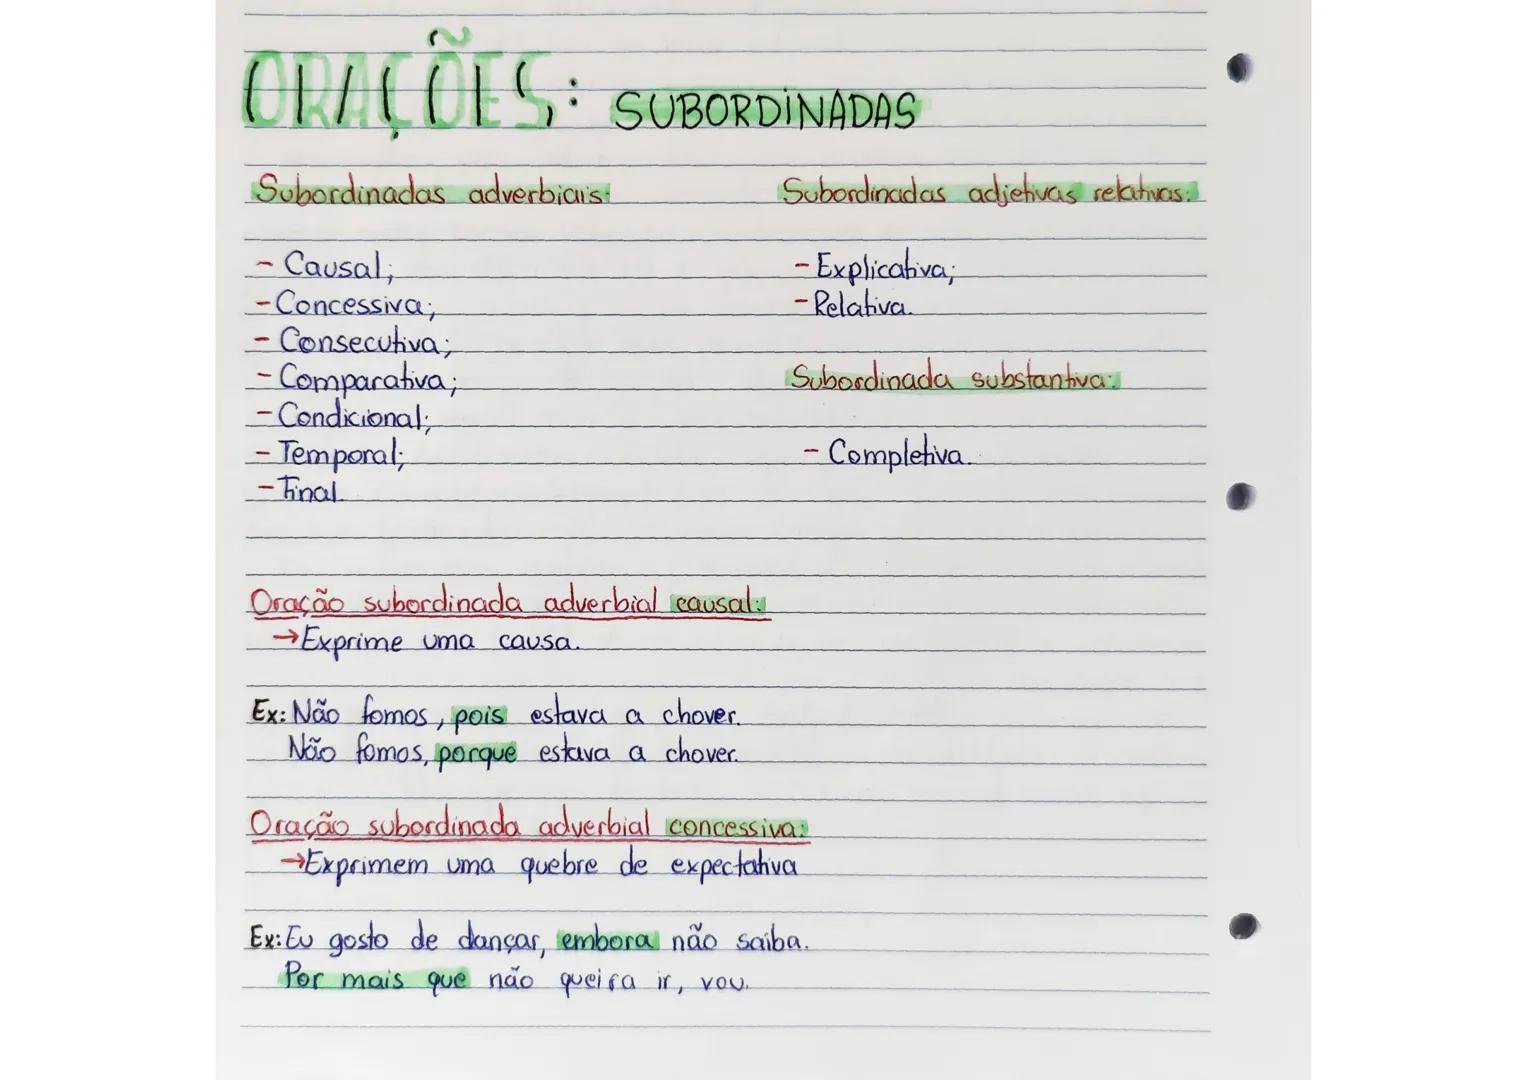 ORAÇÕES: SUBORDINADAS
Subordinadas adverbiais:
- Causal;
- Concessiva;
- Consecutiva;
- Comparativa;
- Condicional;
- Temporal;
- Final.
Subordinadas adjetivas relativas:
- Explicativa;
- Relativa.
Subordinada substantiva:
- Completiva.
Oração subordinada adverbial causal:
→ Exprime uma causa.
Ex: Não fomos, pois estava a chover.
Não fomos, porque estava a chover.
Oração subordinada adverbial concessiva:
→ Exprimem uma quebre de expectativa
Ex: Eu gosto de dançar, embora não saiba.
Por mais que não queira ir, vou.